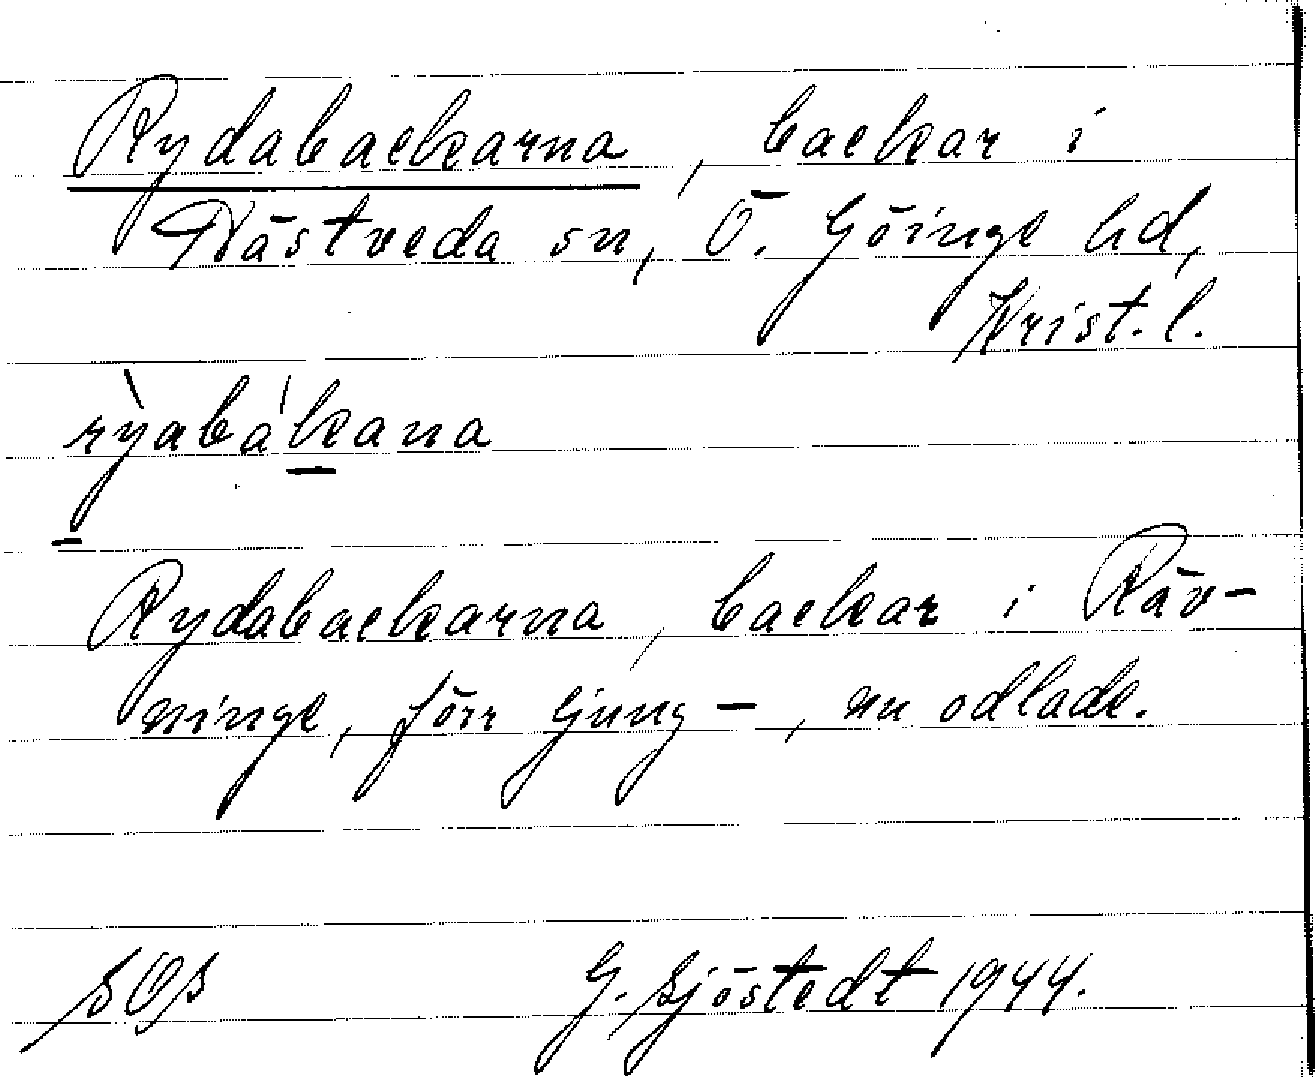 Rydabackarna, backar i
Nästveda sn, Ö. Göinge hd,
Krist. l.
rỳabákana
Rydabackarna, backar i Räv-
ninge, förr ljung-, nu odlade.
SOS G. Sjöstedt 1944.